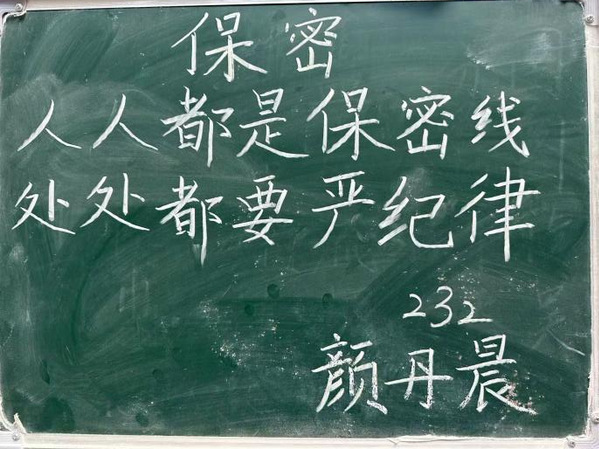 保密
人人都是保密线
处处都要严纪律
232
颜丹晨